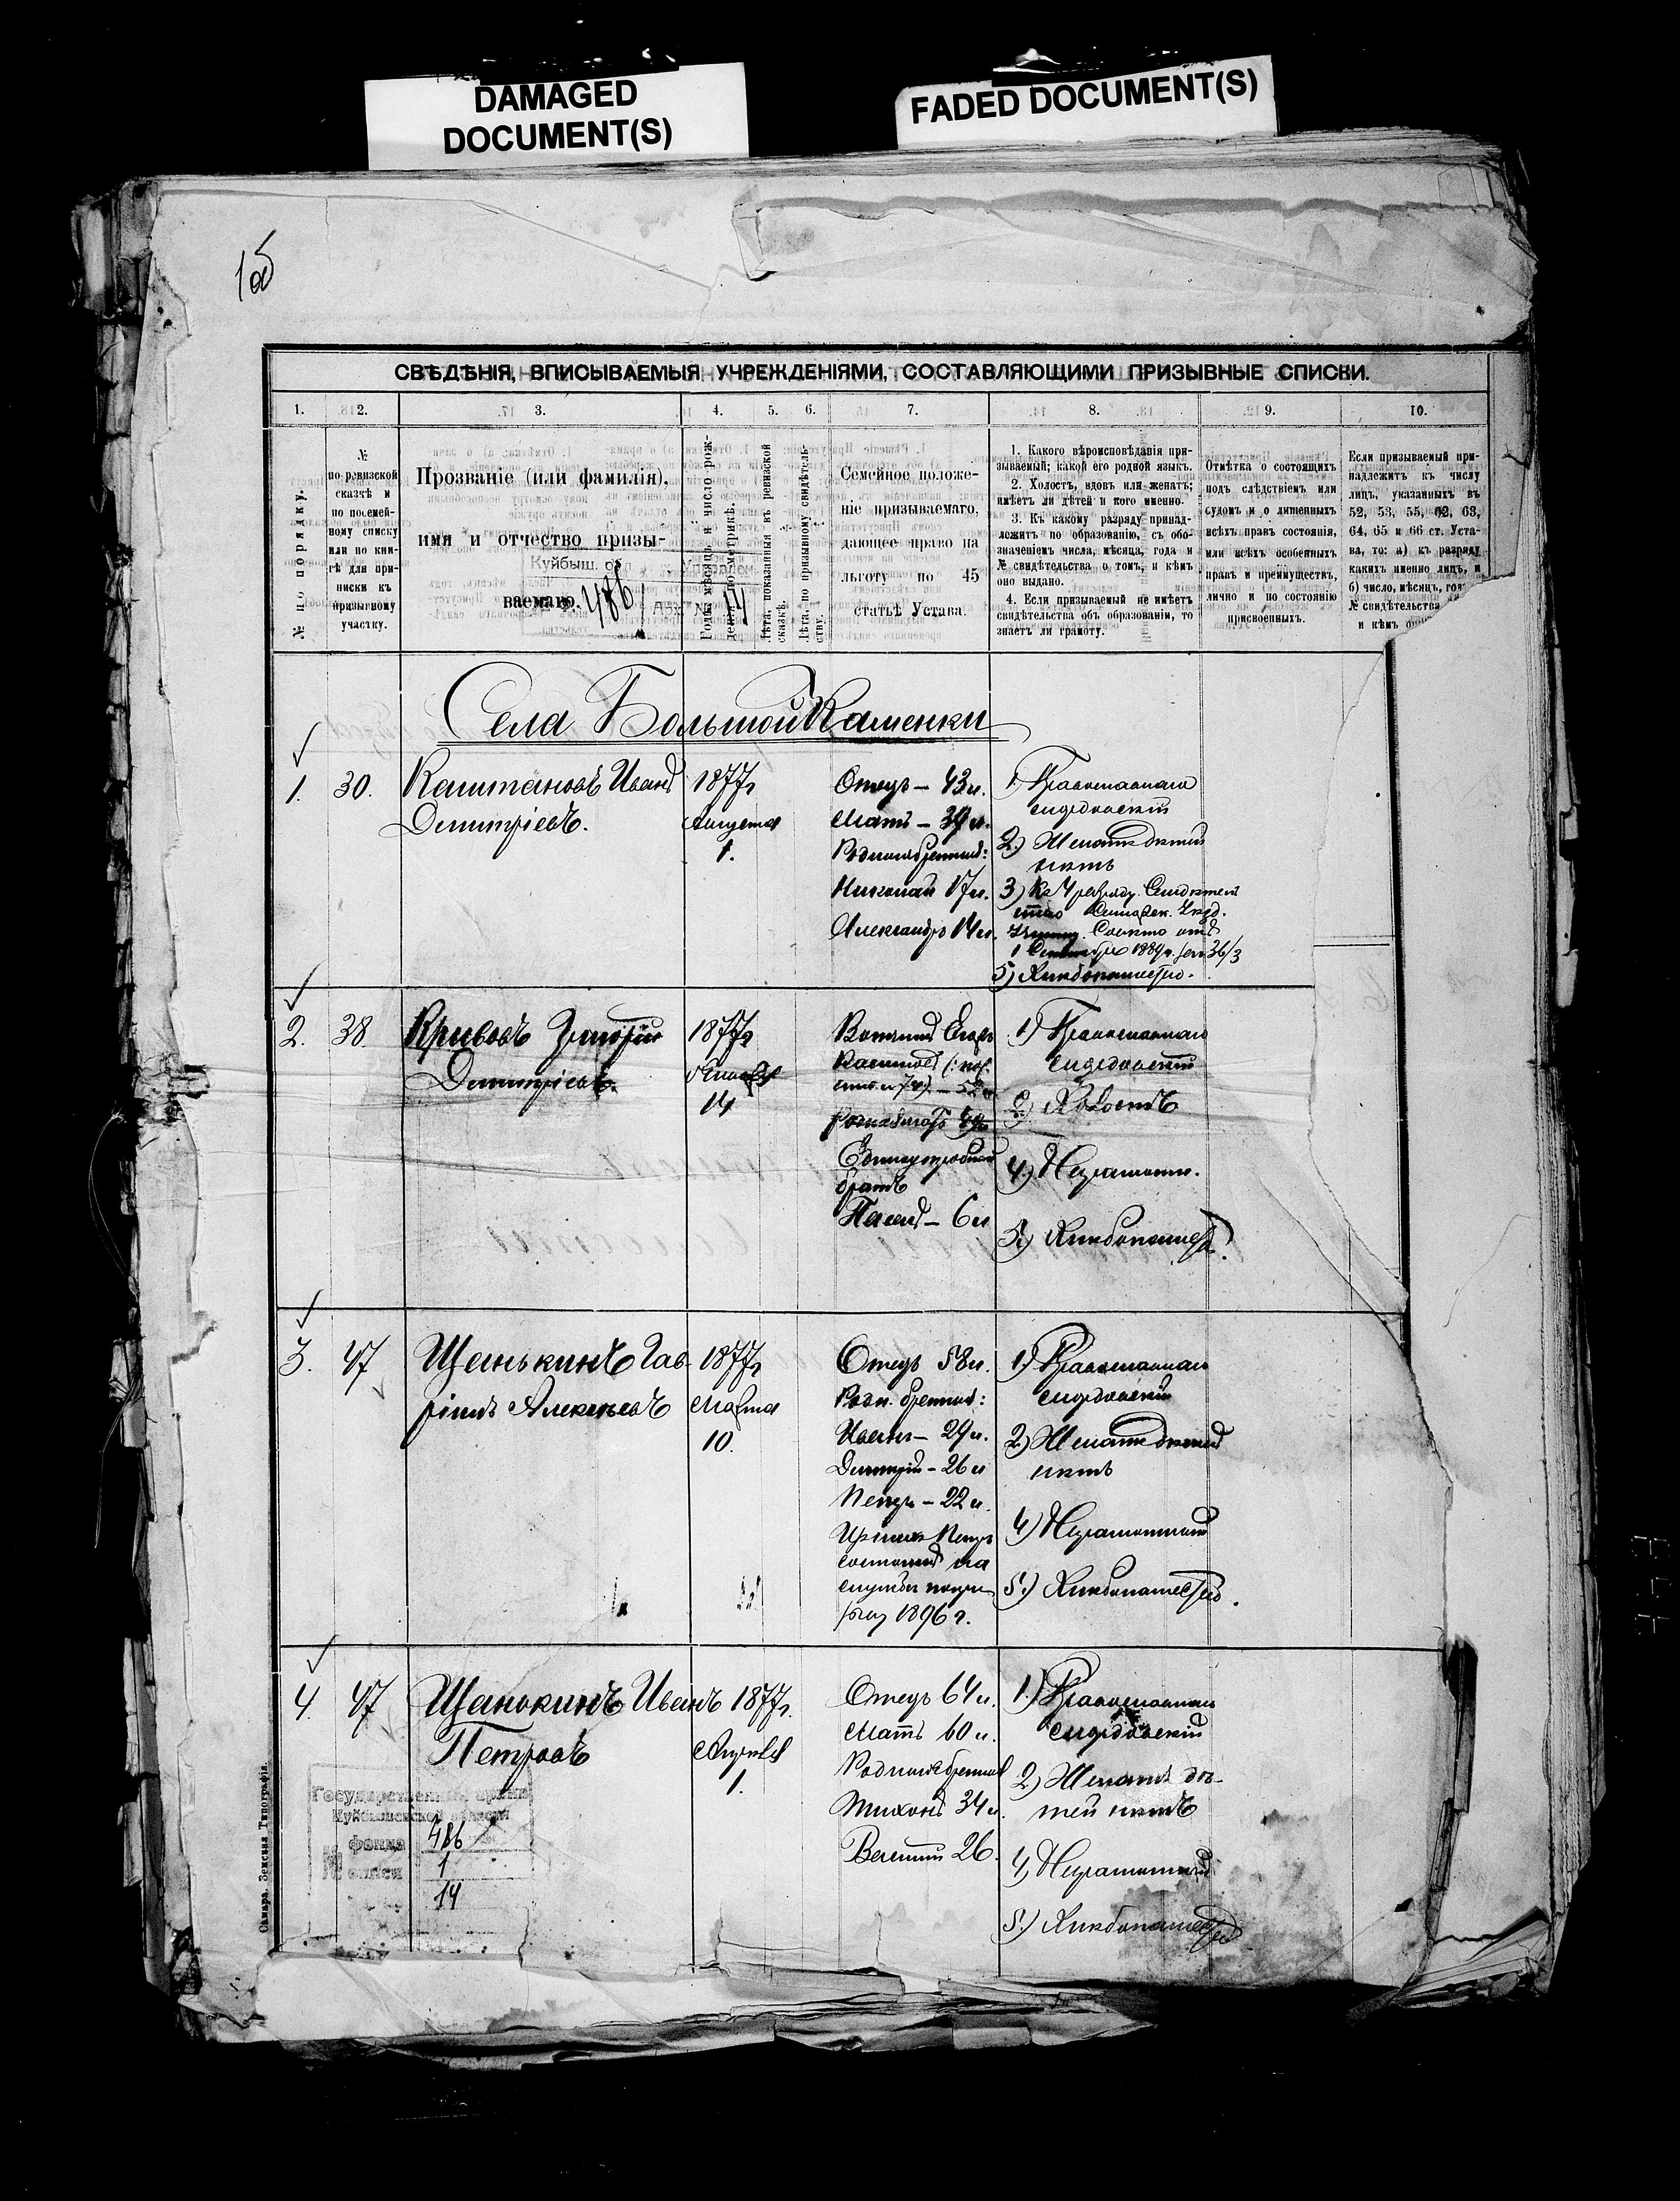 DAMAGED
DOCUMENT(S)
FADED DOCUMENT(S)
1об
СВѢДѢНІЯ, ВПИСЫВАЕМЫЯ УЧРЕЖДЕНІЯМИ, СОСТАВЛЯЮЩИМИ ПРИЗЫВНЫЕ СПИСКИ.
1. 2. 3. 4. 5. 6. 7. 8. 9. 10.
№ по порядку.
№
по ревизской
сказчѣ и
по посемей-
ному списку
или по кни-
гѣ для при-
писки къ
призывному
участку.
Прозваніе (или фамилія),
имя и отчество призы-
ваемаго.
Куйбыш.
486
14
Годъ, мѣсяцъ и число рож-
денія по метрикѣ.
Лѣта, показанныя въ ревизской
сказкѣ.
Лѣта, по призывному свидѣтель-
ству.
Семейное положе-
ніе призываемаго,
дающее право на
льготу по 45
статьѣ Устава.
1. Какого вѣроисповѣданія при-
зываемый; какой его родной языкъ.
2. Холостъ, вдовъ или женатъ;
имѣетъ ли дѣтей и кого именно.
3. Къ какому разряду принад-
лежитъ по образованію, съ обо-
значеніемъ числа, мѣсяца, года и
№ свидѣтельства о томъ, и кѣмъ
оно выдано.
4. Если призываемый не имѣетъ
свидѣтельства объ образованіи, то
знаетъ ли грамоту.
Отмѣтка о состоящихъ
подъ слѣдствіемъ или
судомъ и о лишенныхъ
всѣхъ правъ состоянія,
или всѣхъ особенныхъ
правъ и преимуществъ,
лично и по состоянію
присвоенныхъ.
Если призываемый при-
надлежитъ къ числу
лицъ, указанныхъ въ
52, 53, 55, 62, 63,
64, 65 и 66 ст. Уста-
ва, то: а) къ разряду
какихъ именно лицъ, и
б) число, мѣсяцъ, годъ
№ свидѣтельства
и кѣмъ
Села Большой Каменки
1. 30. Каштановъ Иванъ
Димитріевъ.
1877г
Августа
1.
Отецъ – 43 л.
Мать – 39 л.
Родные братья:
Николай 17 л.
Александръ 14 л.
1) Православнаго
мордовскій
2) Женатъ дѣтей
нѣтъ
3) Къ 4 разряду Свидѣтель
ство
1 Сентября 1889 г. за № 36/3
5) Хлѣбопашество.
2. 38. Кривовъ Григорій
Димитріевъ.
1877г
Января
14
Вотчимъ Егоръ
Родная мать
Единоутробный
братъ
Павелъ – 6 л
1) Православнаго
мордовскій
2) Холостъ
4) Неграмотн.
5) Хлѣбопашест.
3. 47 Щанькинъ Гав-
ріилъ Алексѣевъ
1877г
Марта
10.
Отецъ 58 л.
Родн. братья:
Иванъ – 29 л.
Димитрій – 26 л
Петръ – 22 л.
Изъ нихъ Петръ
состоитъ на
службѣ
1896 г.
1) Православнаго
мордовскій
2) Женатъ дѣтей
нѣтъ
4) Неграмотный
5) Хлѣбопашество.
4. 47 Щанькинъ Иванъ
Петровъ
1877г.
Апрѣля
1.
Отецъ 64 л.
Мать 60 л.
Родные братья
Тихонъ 34 л.
Василій 26.
1) Православнаго
мордовскій
2) Женатъ дѣ-
тей нѣтъ
4) Неграмотный
5) Хлѣбопашество
Государственный архив
Куйбышевской области
фонда 486
описи 1
14
Самара. Земская Типографія.